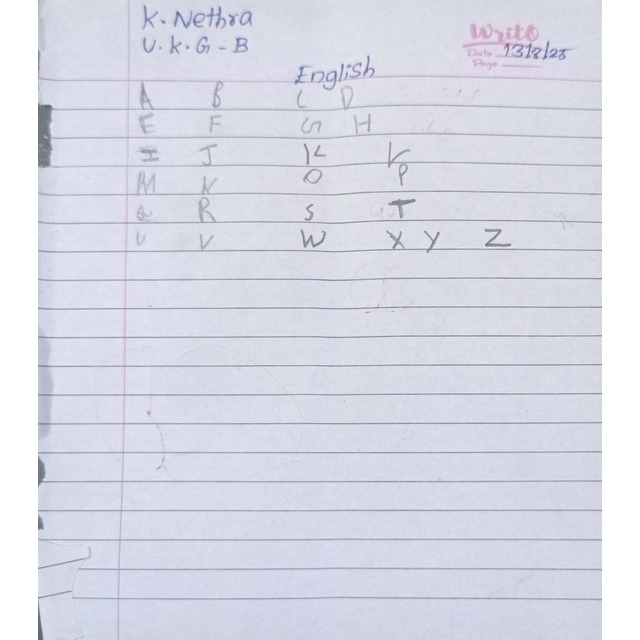 K. Nethra
U.K.G - B
Write
Date 13/8/25
Page
English
A B C D
E F G H
I J K L
M N O P
Q R S T
U V W X Y Z